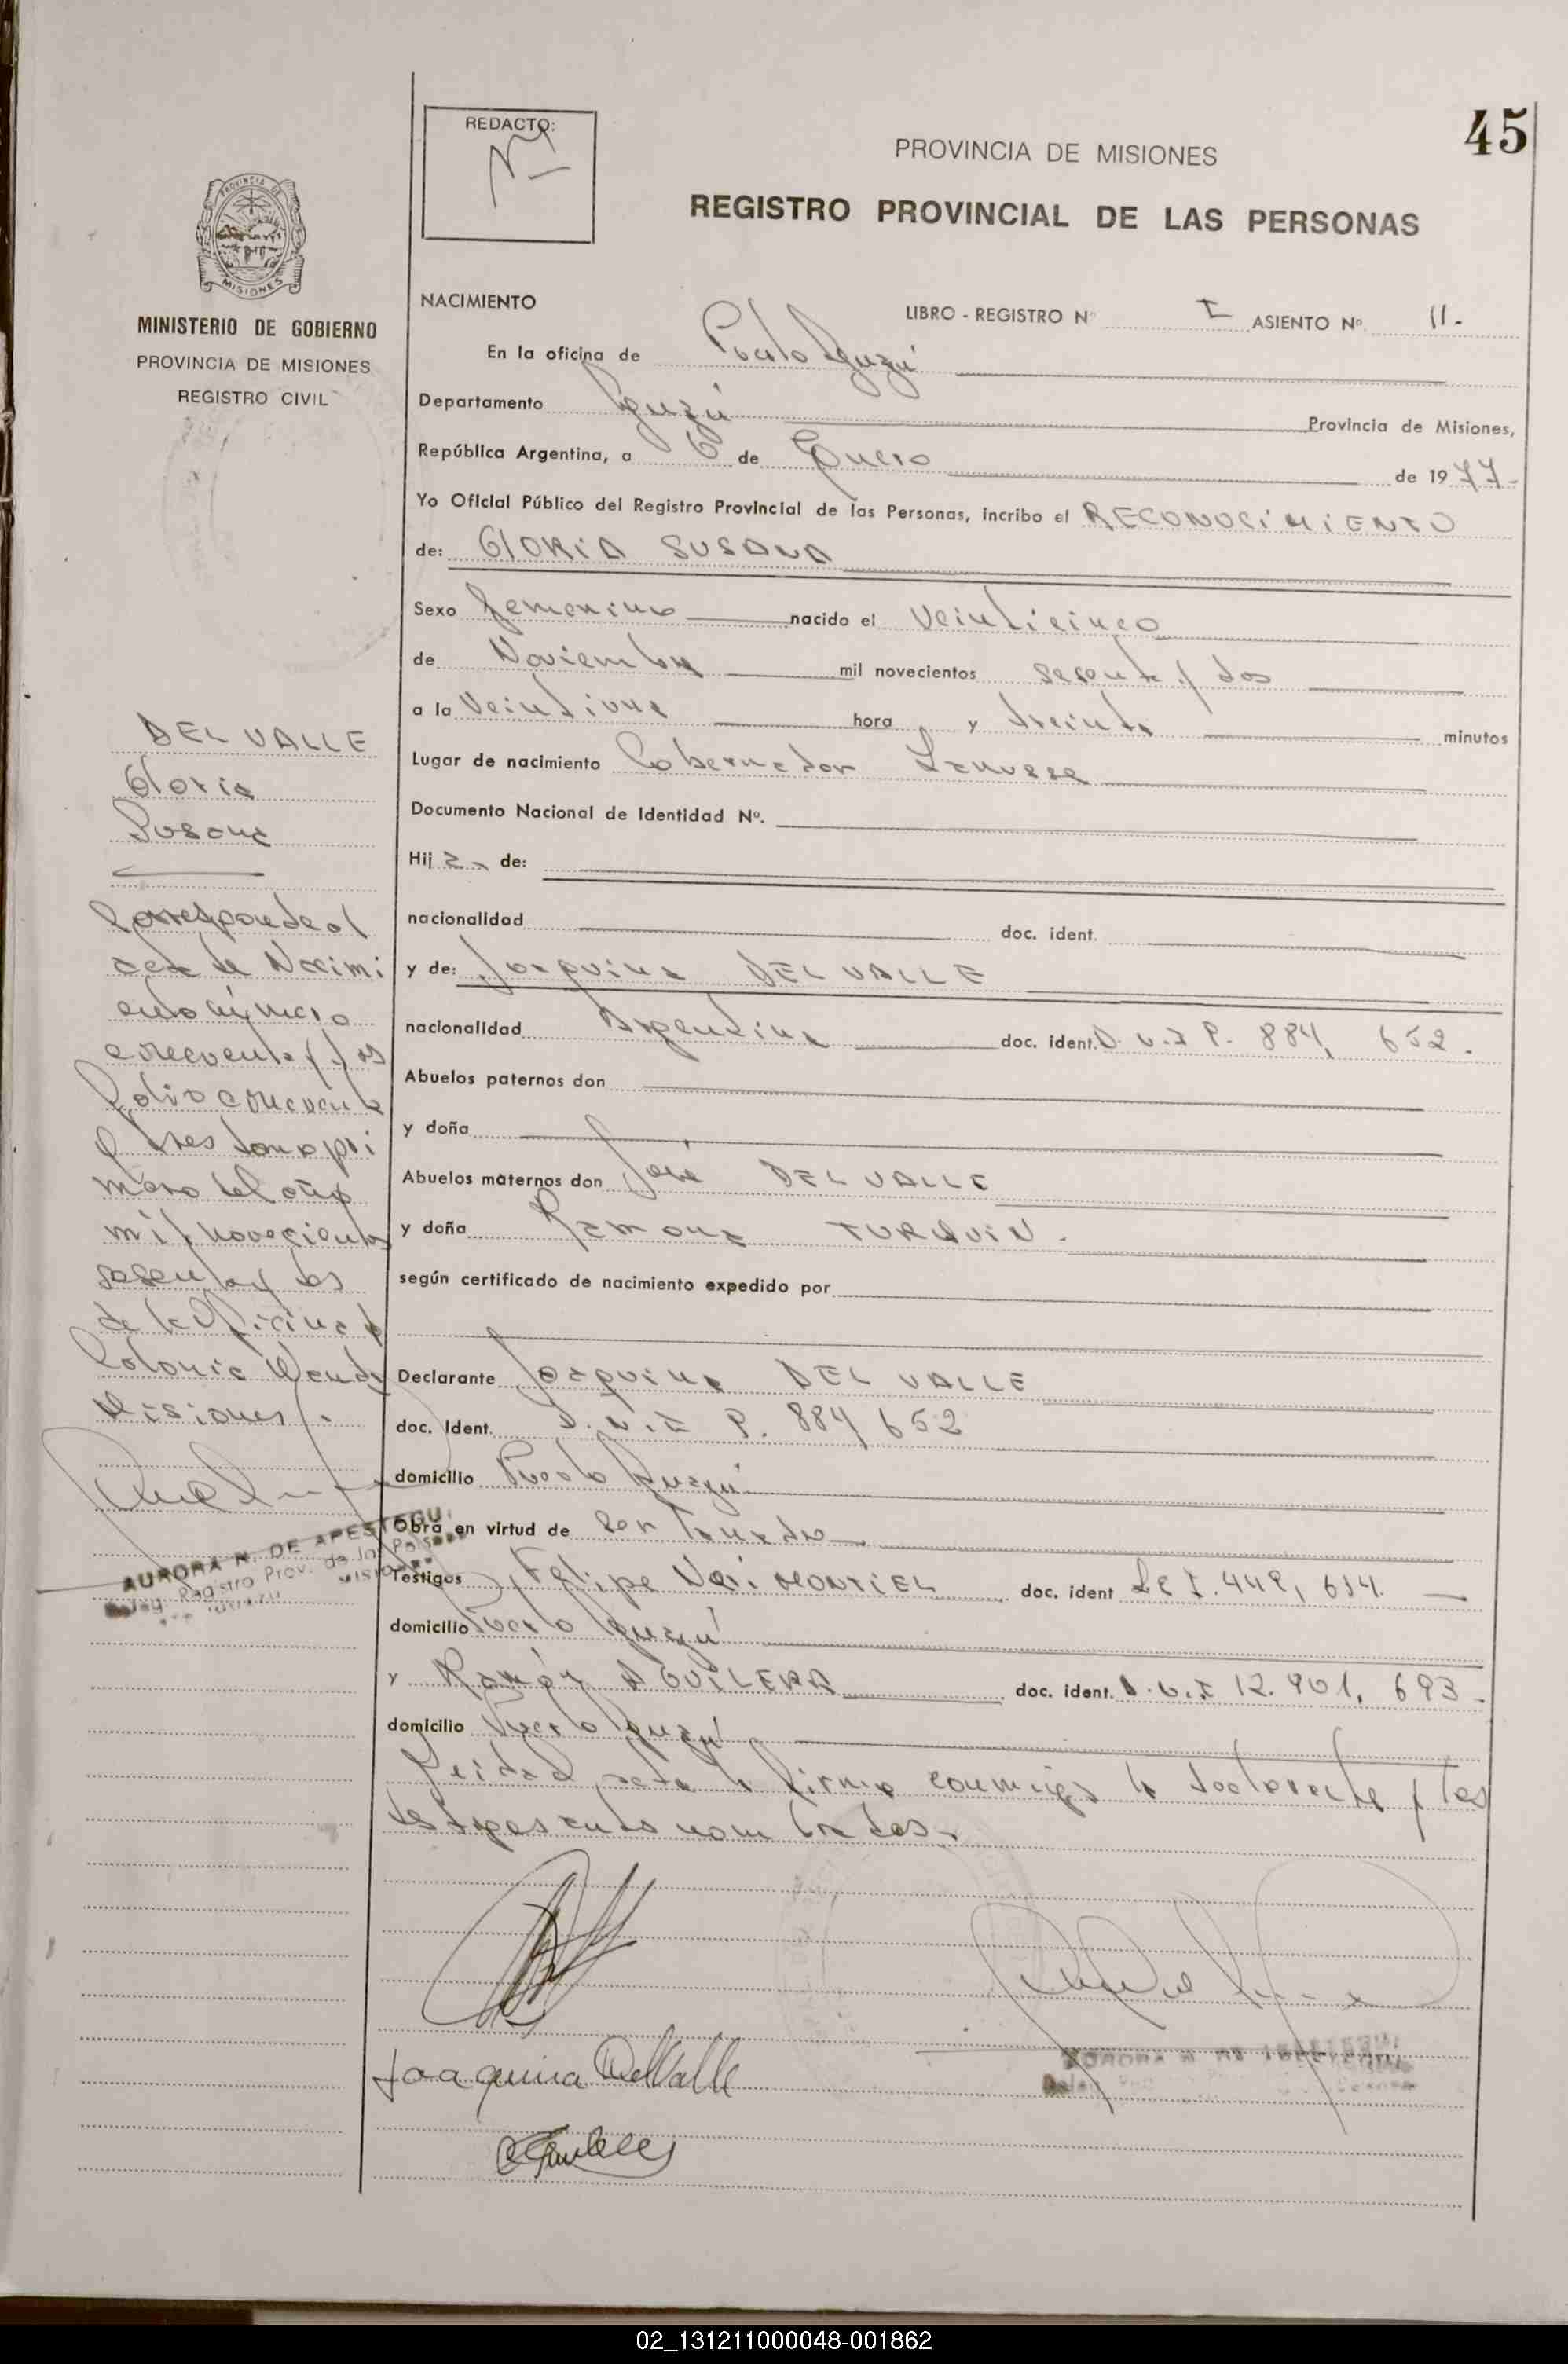 45
REDACTO:
PROVINCIA DE MISIONES
REGISTRO PROVINCIAL DE LAS PERSONAS
PROVINCIA DE
MISIONES
MINISTERIO DE GOBIERNO
PROVINCIA DE MISIONES
REGISTRO CIVIL
DEL VALLE
Gloria
Susana
Corresponde al
acta de Nacimi
ento número
cincuenta y dos
folio cincuenta
y tres tomo pri
mero del año
mil novecientos
sesenta y dos
de la Oficina
Colonia Wanda
Misiones.
AURORA N. DE APESTEGUI
Deleg. Registro Prov. de las Personas
NACIMIENTO
LIBRO - REGISTRO Nº I ASIENTO Nº 11.-
En la oficina de Puerto Iguazú
Departamento Iguazú Provincia de Misiones,
República Argentina, a 6 de Enero de 1977-
Yo Oficial Público del Registro Provincial de las Personas, incribo el RECONOCIMIENTO
de: GlORIA SUSANA
Sexo femenino nacido el Veinticinco
de Noviembre mil novecientos sesenta y dos
a la Veintiuna hora y treinta minutos
Lugar de nacimiento Gobernador Lanusse
Documento Nacional de Identidad Nº.
Hija de:
nacionalidad doc. ident.
y de: Joaquina DEL VALLE
nacionalidad Argentina doc. ident. D.N.I P. 884, 652.
Abuelos paternos don
y doña
Abuelos maternos don José DEL VALLE
y doña Ramona TURQUIN.
según certificado de nacimiento expedido por
Declarante Joaquina DEL VALLE
doc. Ident. D.N.I P. 884, 652
domicilio Puerto Iguazú
Obra en virtud de ser
Testigos Felipe Neri MONTIEL doc. ident
domicilio Puerto Iguazú
y Ramón AGUILERA doc. ident. D.N.I 12.901, 693.
domicilio Puerto Iguazú
Leída el acta la firma conmigo la declarante y los
testigos nombrados.
Joaquina DelValle
AURORA N. DE APESTEGUI
02_131211000048-001862